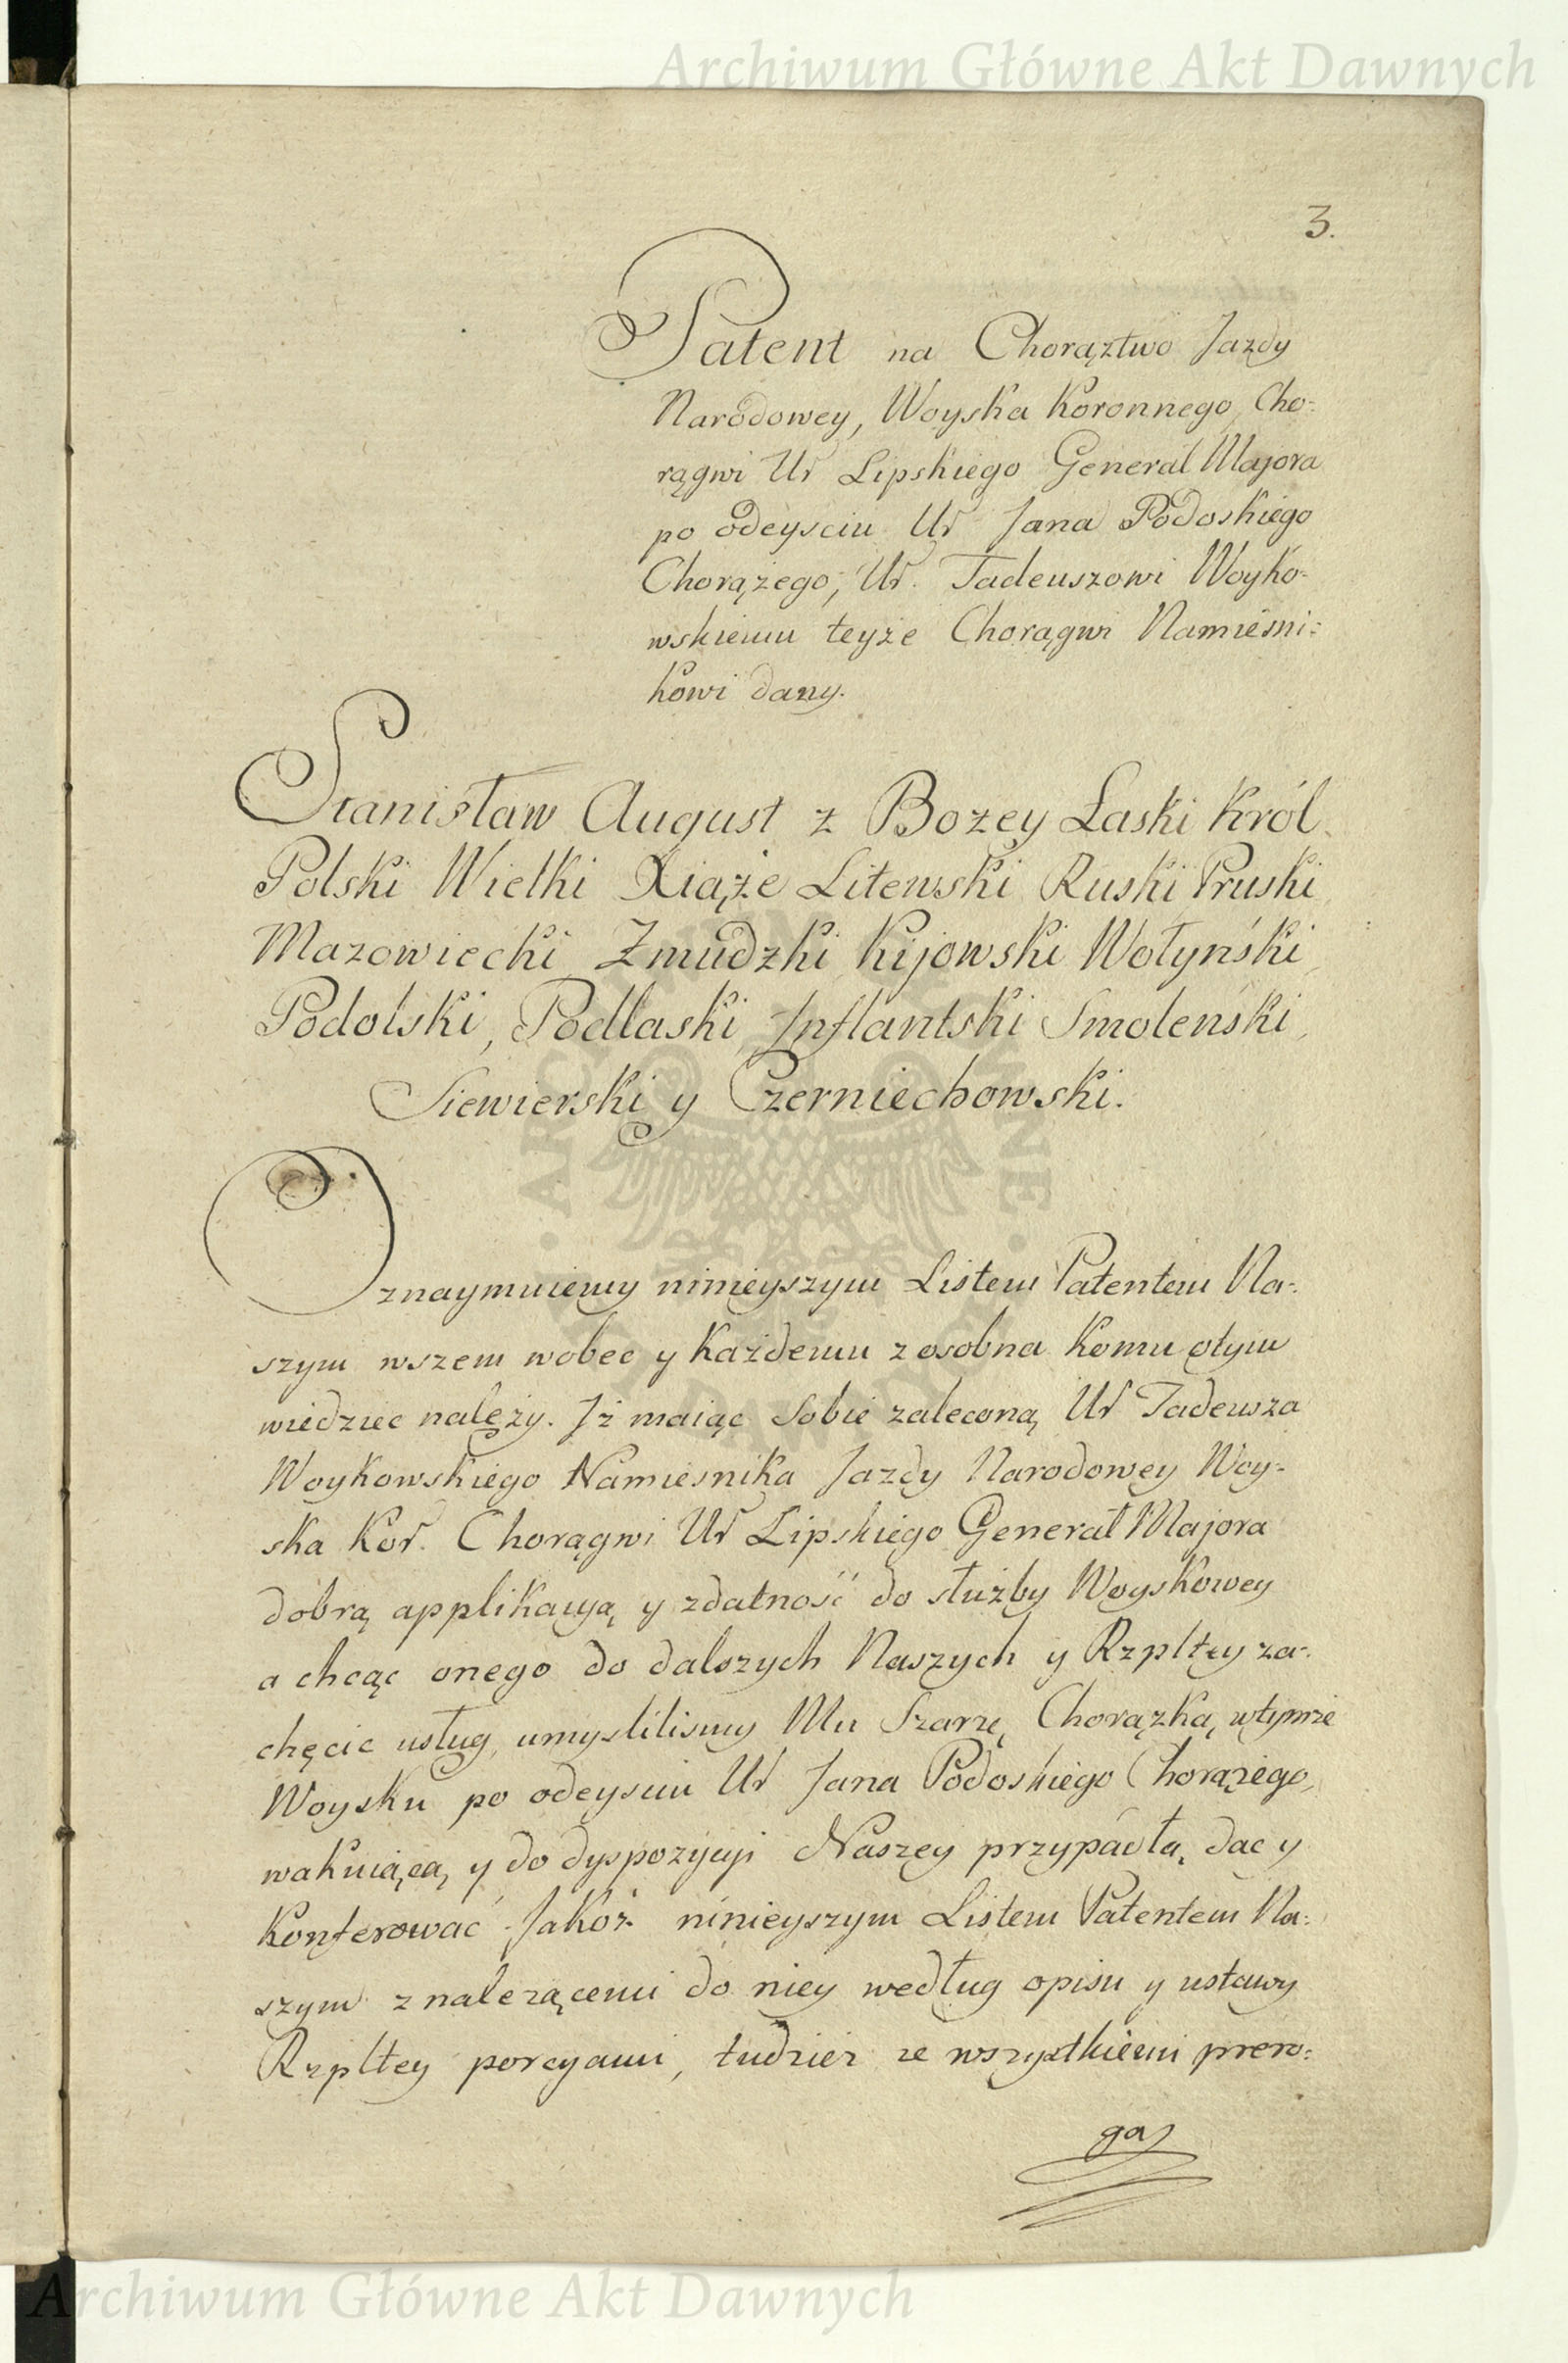 Archiwum Główne Akt Dawnych
3.
Patent na Chorąztwo Jazdy
Narodowey, Woyska Koronnego, Cho-
rągwi Ur Lipskiego General Majora
po odeysciu Ur Jana Podoskiego
Chorążego, Ur. Tadeuszowi Woyko-
wskiemu teyże Chorągwi Namiesni-
kowi dany.
Stanisław August z Bozey Łaski Król
Polski Wielki Xiąże Litewski Ruski Pruski
Mazowiecki, Zmudzki, Kijowski Wołyński,
Podolski, Podlaski, Inflantski Smoleński,
Siewierski y Czerniechowski.
Oznaymuiemy ninieyszym Listem Patentem Na-
szym wszem wobec y Każdemu z osobna Komu otym
wiedziec należy. Iż maiąc Sobie zaleconą Ur Tadeusza
Woykowskiego Namiesnika Jazdy Narodowey Woy-
ska Kor. Chorągwi Ur Lipskiego Generał Majora
dobrą applikacyą y zdatność do służby Woyskowey
a chcąc onego do dalszych Naszych y Rzpltey za-
chęcic usług, umyslilismy Mu Szarzę Chorązką wtymże
Woysku po odeysciu Ur Jana Podoskiego Chorążego,
wakuiącą y do dyspozycyi Naszey przypadłą, dac y
Konferować. Jakoż ninieyszym Listem Patentem Na-
szym z nalezącemi do niey według opisu y ustawy
Rzpltey porcyami, tudzież ze wszystkiemi prero-
ga
ARCHIWUM GŁÓWNE AKT DAWNYCH
Archiwum Główne Akt Dawnych